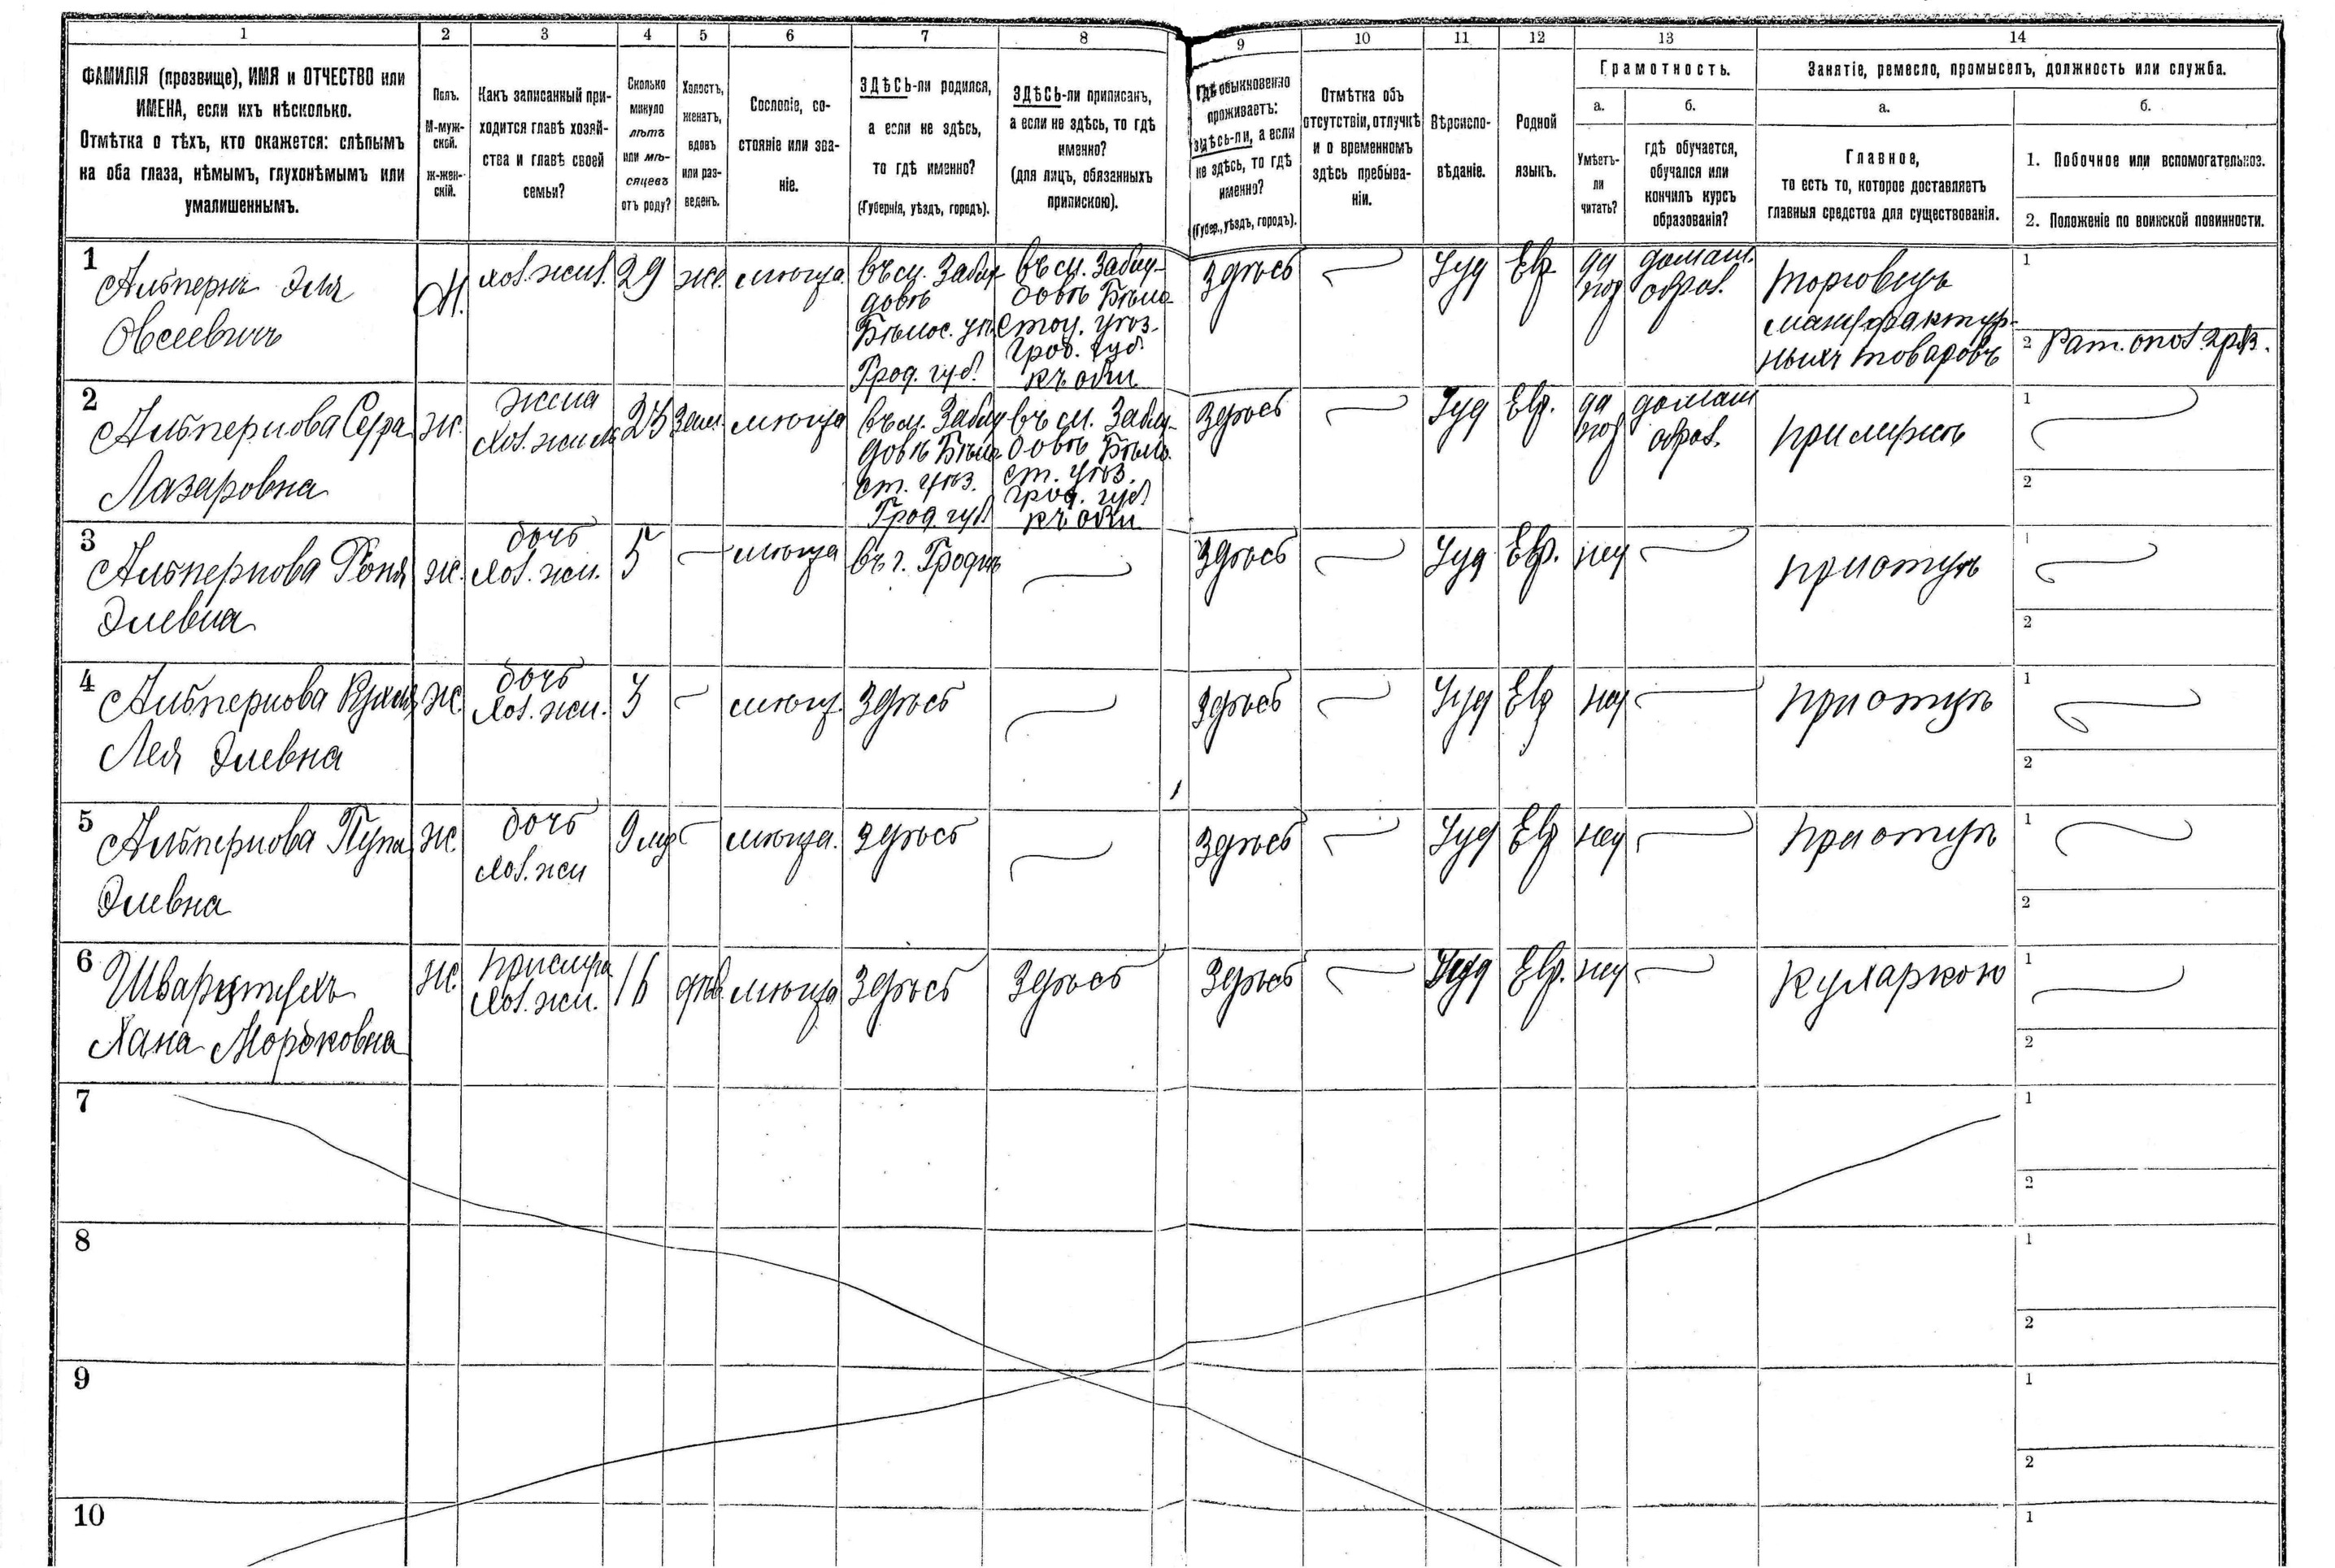 1 2 3 4 5 6 7 8 9 10 11 12 13 14
ФАМИЛІЯ (прозвище), ИМЯ и ОТЧЕСТВО или
ИМЕНА, если ихъ нѣсколько.
Отмѣтка о тѣхъ, кто окажется: слѣпымъ
на оба глаза, нѣмымъ, глухонѣмымъ или
умалишеннымъ.
Полъ.
М-муж-
ской.
ж-жен-
скій.
Какъ записанный при-
ходится главѣ хозяй-
ства и главѣ своей
семьи?
Сколько
минуло
лѣтъ
или мѣ-
сяцевъ
отъ роду?
Холостъ,
женатъ,
вдовъ
или раз-
веденъ.
Сословіе, со-
стояніе или зва-
ніе.
ЗДѢСЬ-ли родился,
а если не здѣсь,
то гдѣ именно?
(Губернія, уѣздъ, городъ).
ЗДѢСЬ-ли приписанъ,
а если не здѣсь, то гдѣ
именно?
(для лицъ, обязанныхъ
припискою).
Гдѣ обыкновенно
проживаетъ:
здѣсь-ли, а если
не здѣсь, то гдѣ
именно?
(Губер., уѣздъ, городъ).
Отмѣтка объ
отсутствіи, отлучкѣ
и о временномъ
здѣсь пребыва-
ніи.
Вѣроиспо-
вѣданіе.
Родной
языкъ.
Грамотность.
а.
Умѣетъ-
ли
читать?
б.
гдѣ обучается,
обучался или
кончилъ курсъ
образованія?
Занятіе, ремесло, промыселъ, должность или служба.
а.
Главное,
то есть то, которое доставляетъ
главныя средства для существованія.
б.
1. Побочное или вспомогательное.
2. Положеніе по воинской повинности.
1
Альпернъ Эля
Овсеевичъ
М.
хоз. жил.
29
же.
мѣща.
въ м. Заблу
довѣ
Бѣлос. уѣ
Грод. губ.
въ м. Заблу-
довѣ Бѣло
стоц. уѣз.
Грод. губ.
здѣсь
Іуд
Евр
да
домаш.
образ.
торговецъ
мануфактур-
ныхъ товаровъ
1
2
2
Альпернова Сера
Лазаровна
ж.
жена
хоз. жил
мѣща
въ м. Заблу
довѣ Бѣло
ст. уѣз.
Грод. губ
въ м. Заблу-
довѣ Бѣло
ст. уѣз.
Грод. губ
здѣсь
Іуд
Евр.
да
домаш
образ.
при мужѣ
1
2
3
Альпернова Роня
Элевна
ж.
дочь
хоз. жи.
5
мѣща
въ г. Гродн
здѣсь
Іуд
Евр.
нѣ
при отцѣ
1
2
4
Альпернова
Лея Элевна
ж.
дочь
хоз. жи.
3
мѣщ.
здѣсь
здѣсь
Іуд
Евр
нѣ
при отцѣ
1
2
5
Альпернова Пупа
Элевна
ж.
дочь
хоз. жи
9 мѣ
мѣща.
здѣсь
здѣсь
Іуд
Евр
нѣ
при отцѣ
1
2
6
Хана Мордковна
ж.
прислуга
хоз. жи.
16
дѣв.
мѣща
здѣсь
здѣсь
здѣсь
Іуд
Евр.
нѣ
кухаркою
1
2
7
1
2
8
1
2
9
1
2
10
1